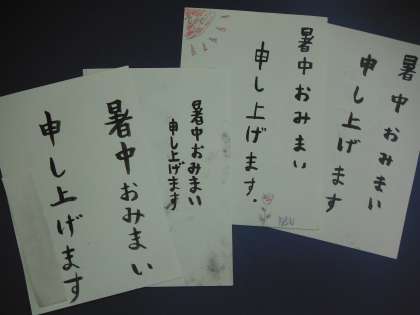 暑中おみまい
申し上げます
暑中おみまい
申し上げます
暑中おみまい
申し上げます.
暑中おみまい
申し上げます